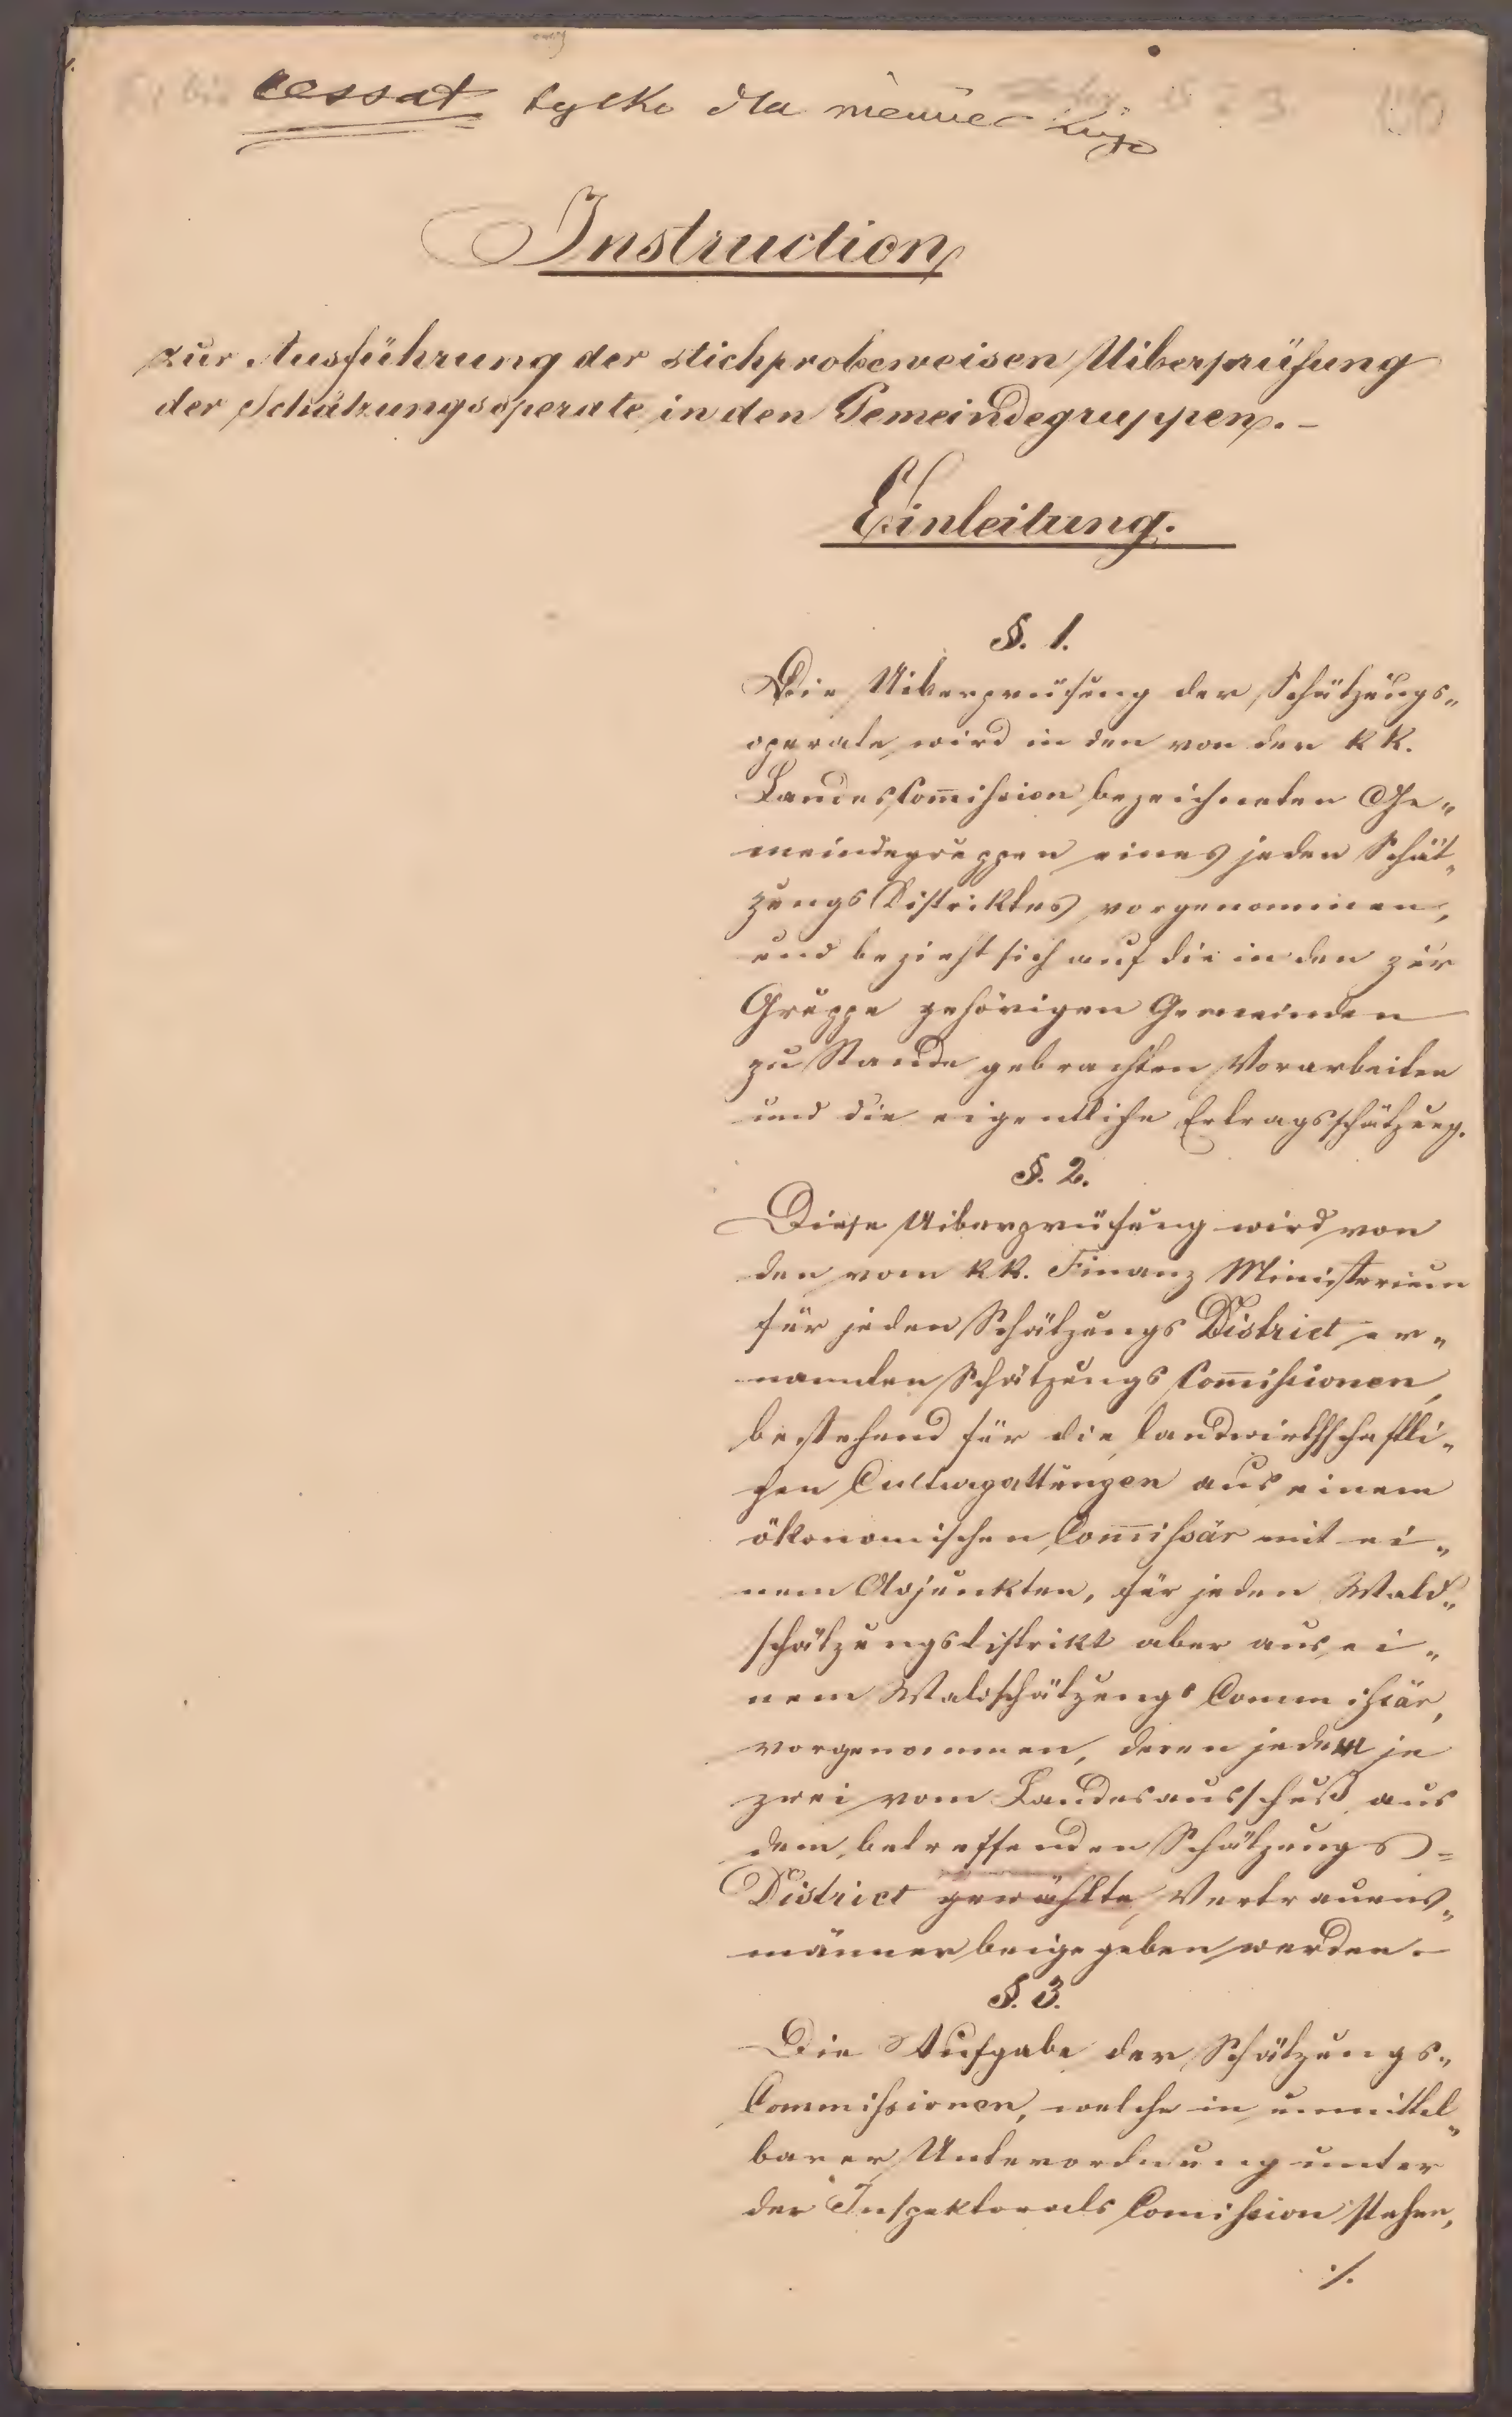 cessat tylko dla
Instruction
zur Ausführung der stichprobeweisen Uiberprüfung
der Schätzungsoperate in den Gemeindegruppen.–
Einleitung.
§. 1.
Die Uiberprüfung der Schätzungs„
operate wird in den von der KK.
Landes Com̅ission bezeichneten Ge„
meindegruppen eines jeden Schät„
zungs Distriktes vorgenommen,
und bezieht sich auf die in den zur
Gruppe gehörigen Gemeinden
zu Stande gebrachten Vorarbeiten
und die eigentliche Ertragsschätzung.
§. 2.
Diese Uiberprüfung wird von
den vom KK. Finanz Ministerium
für jeden Schätzungs District er„
nannten Schätzungs Com̅issionen,
bestehend für die landwirthschaftli„
chen Culturgattungen aus einem
ökonomischen Com̅issär mit ei„
nem Adjunkten, für jeden Wald„
schätzungsdistrikt aber aus ei„
nem Waldschätzungs Commissär,
vorgenommen, deren jedem je
zwei vom Landesausschuß aus
dem betreffenden Schätzungs=
District gewählte Vertrauens„
männer beigegeben werden.–
§. 3.
Die Aufgabe der Schätzungs„
Commissionen, welche in unmittel„
barer Unterordnung unter
der Inspektorats Comission stehen,
./.